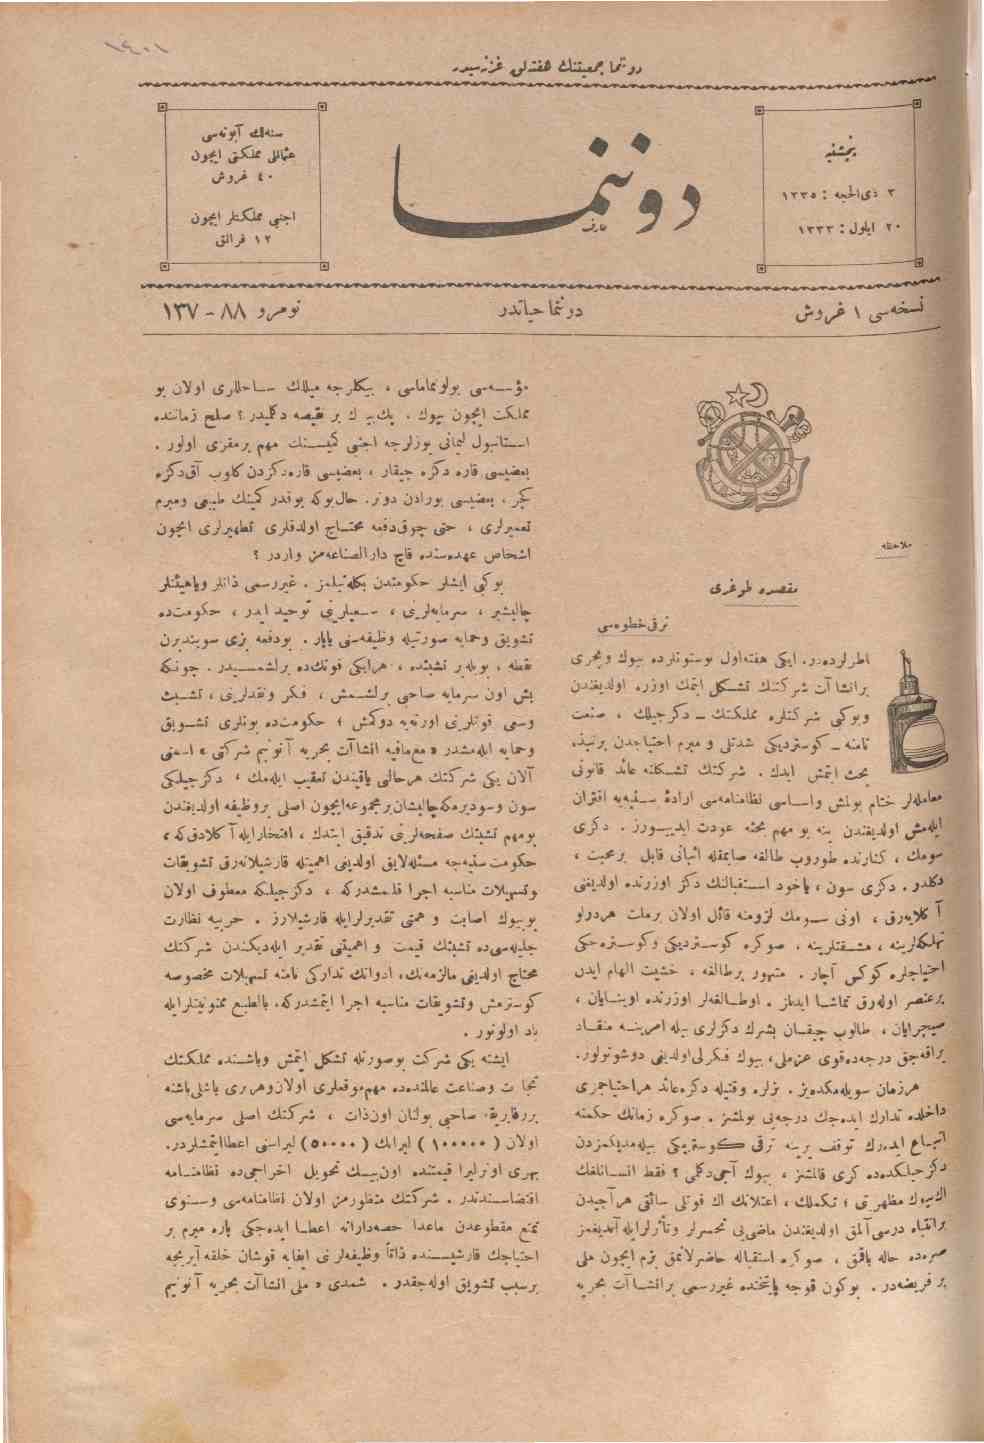 ١٤٠١
دوننما جمعیتنك هفته‌لق غزته‌سیدر
پنجشنبه
٣ ذی‌الحجه : ١٣٣٥
٢٠ ایلول : ١٣٣٣
دوننما
سنه‌لك آبونه‌سی
عثمانلی مملكتی ایچون
٤٠ غروش
اجنبی مملكتلر ایچون
١٢ فرانق
نسخه‌سی ١ غروش
دوننما حیاتدر
نومرو ٨٨ - ١٣٧
ملاحظه
مقصده طوغری
ترقی خطوه‌سی
اطرلرده‌در. ایكی هفته اول بوستونلرده بیوك وبحری
برانشاآت شركتنك تشكل ایتمك اوزره اولدیغندن
وبوكبی شركتلره مملكتك ـ دكزجیلك ، صنعت
نامنه ـ كوستردیكی شدتلی و مبرم احتیاجدن برنبذه
بحث ایتمش ایدك . شركتك تشكلنه عائد قانونی
معامله‌لر ختام بولمش واساسی نظامنامه‌سی ارادهٔ سنیه‌یه اقتران
ایله‌مش اولدیغندن ینه بو مهم بحثه عودت ایدییورز . دكزی
سومك ، كنارنده طوروب طالغه صایمقله اثباتی قابل برمحبت ،
دكلدر . دكزی سون ، یاخود استقبالنك دكز اوزرنده اولدیغنی
آكلایه‌رق ، اونی سومك لزومنه قائل اولان برملت هردرلو
تهلكه‌لرینه ، مشقتلرینه ، صوكره كوستردیكی وكوستره‌جكی
احتیاجلره كوكس آچار . متهور برطالغه ، خشیت الهام ایدن
برعنصر اوله‌رق تماشا ایدلمز . اوطالغه‌لر اوزرنده اوینایان ،
صیچرایان ، طالوب چیقان بشرك دكزلری بیله امرینه منقاد
براقه‌جق درجه‌ده قوی عزملی، بیوك فكرلی اولدیغی دوشونولور.
هرزمان سویله‌مكده‌یز . بزلره وقتیله دكزه عائد هر احتیاجمزی
داخلده تدارك ایده‌جك درجه‌یی بولمشز . صوكره زمانك حكمنه
اتباع ایده‌رك توقف یرینه ترقی كوستریكی بیله‌مدیكمزدن
دكزجیلكده‌ده كری قالمشز ، بیوك آجی دكلمی ؟ فقط انسانلغك
اك بیوك مظهریتی ؛ تكملك ، اعتلانك اك قوتلی سائقی هرآجیدن
برانتباه درسی آلمق اولدیغندن ماضی‌یی تحسرلر وتأثرلرایله آكدیغمز
صره‌ده حاله باقمق ، صوكره استقباله حاضرلانمق بزم ایچون ملی
برفریضه‌در . بوكون قوجه پایتختده غیررسمی برانشاآت بحریه
مؤسسه‌سی بولونماماسی ، بیكلرجه میللك ساحللری اولان بو
مملكت ایچون بیوك ، پك بیوك بر نقیصه دكلمیدر ؟ صلح زماننده
استانبول لیمانی یوزلرجه اجنبی كمیسنك مهم برمقری اولور .
بعضیسی قاره دكزه چیقار ، بعضیسی قاره‌دكزدن كلوب آق‌دكزه
كچر ، بعضیسی بورادن دونر. حال‌بوكه بوقدر كمینك طبیعی ومبرم
تعمیرلری ، حتی چوق‌دفعه محتاج اولدقلری تطهیرلری ایچون
اشخاص عهده‌سنده قاچ دارالصناعه‌من واردر ؟
بوكبی ایشلر حكومتدن بكله‌نیلمز . غیررسمی ذاتلر ویاهیئتلر
چالیشیر ، سرمایه‌لرینی ، سعیلرینی توحید ایدر ، حكومت‌ده
تشویق وحمایه صورتیله وظیفه‌سنی یاپار . بودفعه بزی سویندیرن
نقطه ، بویله‌بر تشبثده ، هرایكی قوتك‌ده برلشمسیدر. چونكه
یش اون سرمایه صاحبی برلشمش ، فكر ونقدلرینی ، تشبث
وسعی قوتلرینی اورته‌یه دوكمش ؛ حكومت‌ده بونلری تشویق
وحمایه ایله‌مشدر « مع‌مافیه انشاآت بحریه آنونیم شركتی » اسمنی
آلان یكی شركتك هرحالی یاقیندن تعقیب ایله‌مك ؛ دكزجیلكی
سون وسودیرمكه چالیشان برمجموعه ایچون اصلی بروظیفه اولدیغندن
بومهم تشبثك صفحه‌لرینی تدقیق ایتدك ، افتخارایله آكلادق‌كه ،
حكومت سنیه‌جه مسئله لایق اولدیغی اهمیتله قارشیلانه‌رق تشویقات
وتسهیلات مناسبه اجرا قلنمشدركه ، دكزجیلكه معطوف اولان
بوبیوك اصابت و همتی تقدیرلرایله قارشیلارز . حربیه نظارت
جلیله‌سی‌ده تشبثك قیمت و اهمیتنی تقدیر ایله‌دیكندن شركتك
محتاج اولدیغی مالزمه‌نك، ادواتك تداركی نامنه تسهیلات مخصوصه
كوسترمش وتشویقات مناسبه اجرا ایتمشدركه، بالطبع ممنونیتلرایله
یاد اولونور .
ایشته یكی شركت بوصورتله تشكل ایتمش وباشنده مملكتك
تجارت وصناعت عالمنده‌ده مهم موقعلری اولان وهربری باشلی باشنه
بررفابریقه صاحبی بولنان اون ذات ، شركتك اصلی سرمایه‌سی
اولان ( ١٠٠٠٠٠ ) لیرانك ( ٥٠٠٠٠ ) لیراسنی اعطا ایتمشلردر.
بهری اونرلیرا قیمتنده اون‌بیك تحویل اخراجی‌ده نظامنامه
اقتضاسندندر . شركتك منظورمز اولان نظامنامه‌سی وسنوی
تمتع مقطوعدن ماعدا حصه‌دارانه اعطا ایده‌جكی پاره مبرم بر
احتیاجك قارشیسنده ذاتاً وظیفه‌لرینی ایفایه قوشان خلقه آیریجه
برسبب تشویق اوله‌جقدر . شمدی « ملی انشاآت بحریه آنونیم